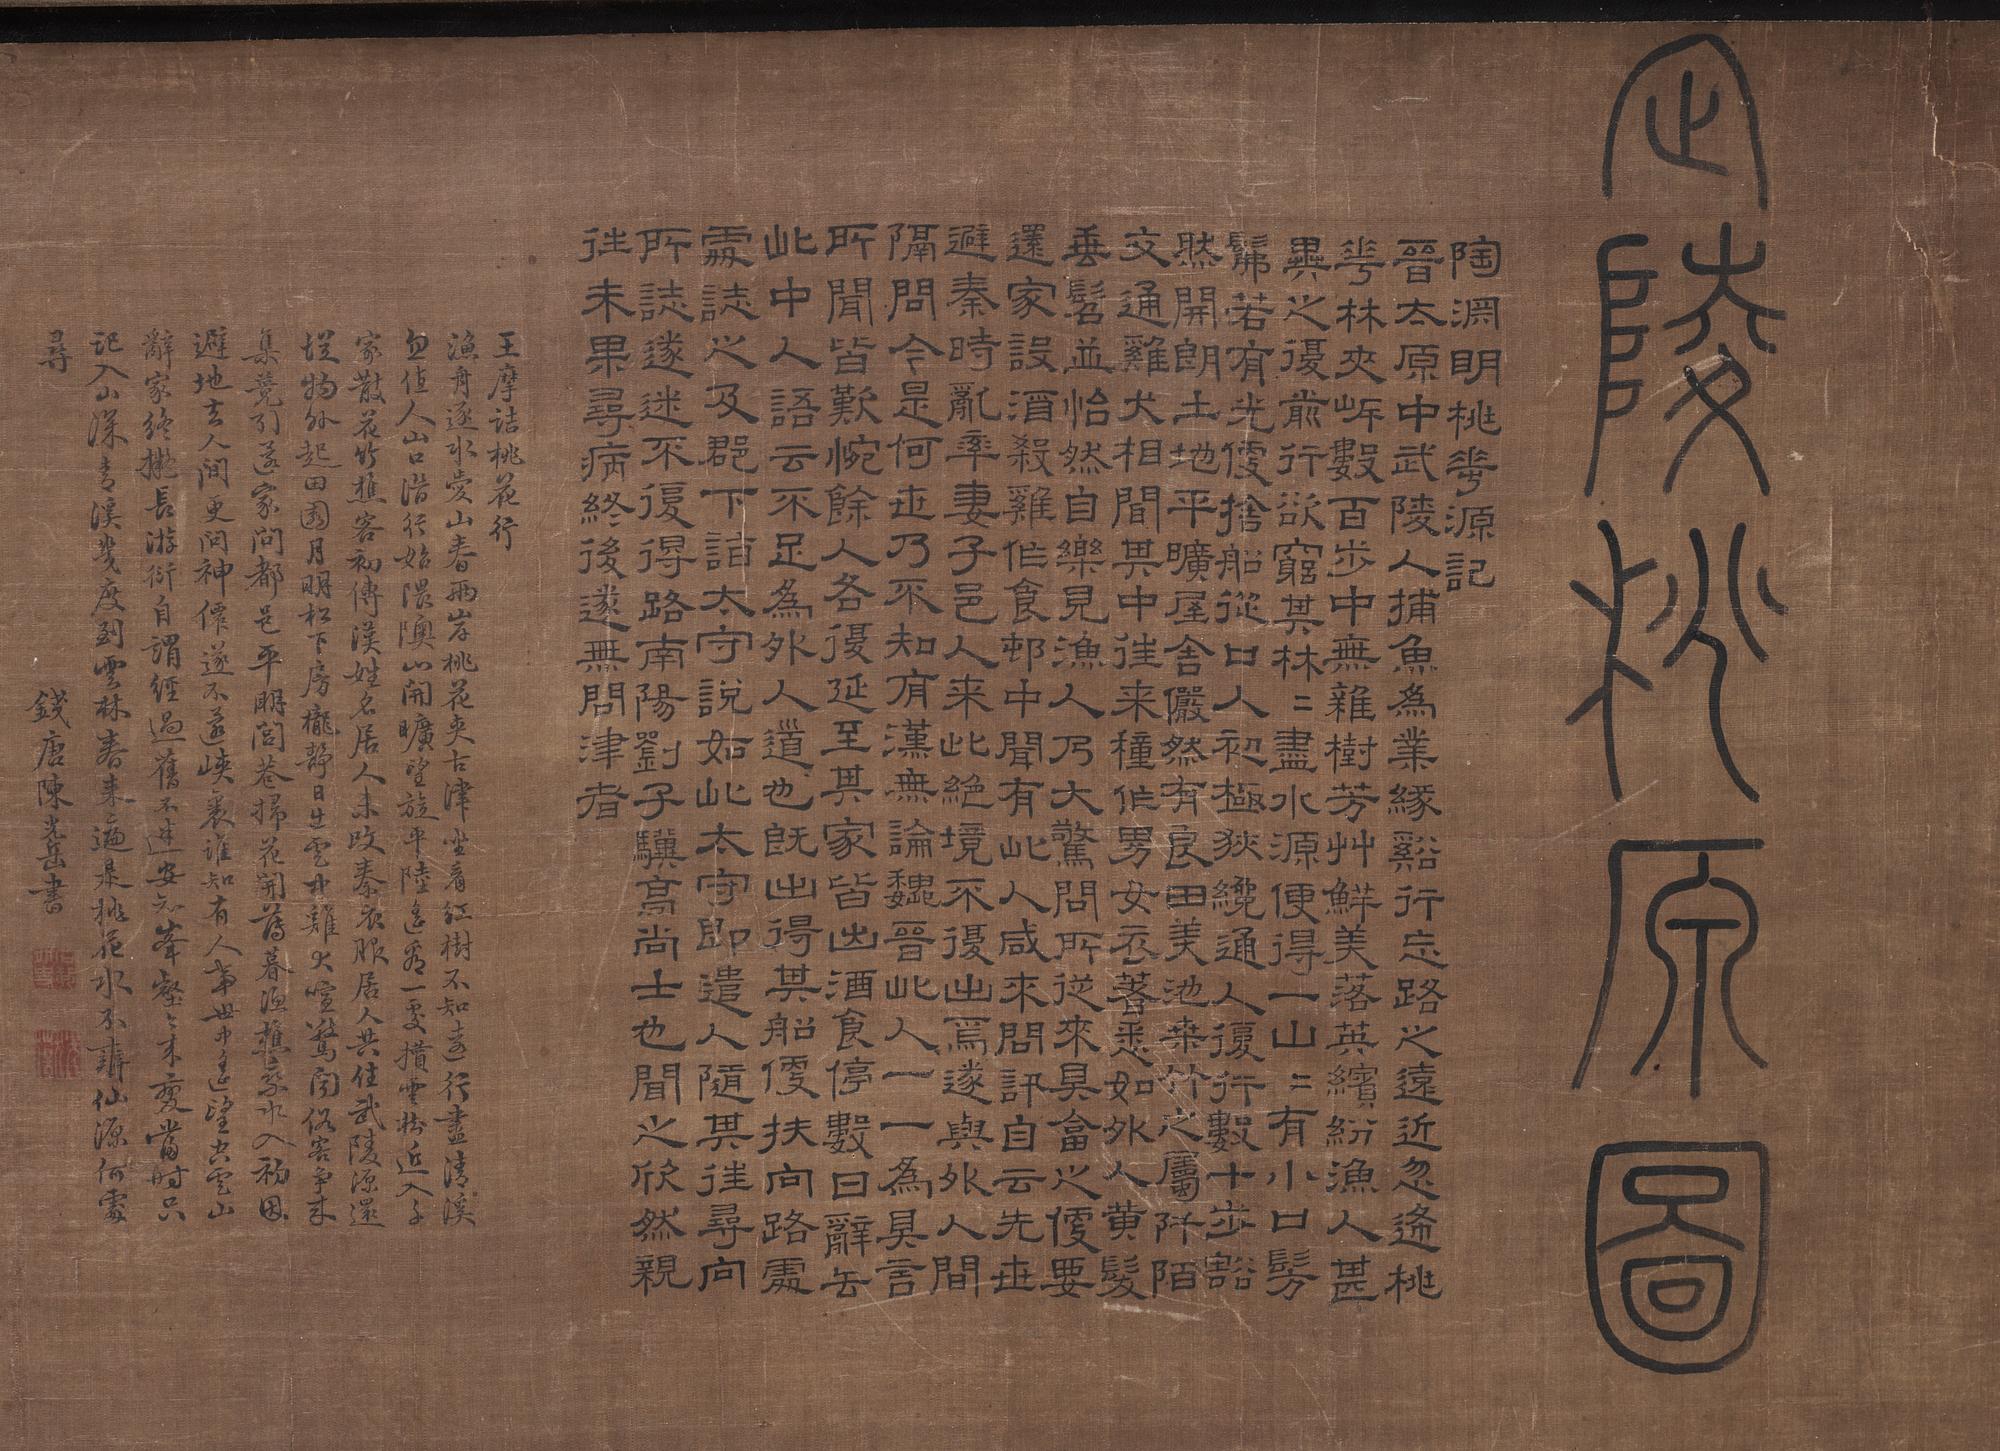 武陵桃原圖
陶淵明桃華源記
晉太原中武陵人捕魚為業緣谿行忘路之遠近忽逢桃
華林夾岸數百步中無雜樹芳艸鮮美落英繽紛漁人甚
異之復前行欲窮其林〻盡水源便得一山〻有小口髣
髴若有光便捨船從口入初極狹纔通人復行數十步豁
然開朗土地平曠屋舍儼然有良田美池桒竹之屬阡陌
交通雞犬相聞其中往来種作男女衣著悉如外人黄髮
垂髫並怡然自樂見漁人乃大驚問所從來具畣之便要
還家設酒殺雞作食邨中聞有此人咸來問訊自云先世
避秦時亂率妻子邑人来此絕境不復出焉遂與外人間
隔問今是何世乃不知有漢無論魏晉此人一一為具言
所聞皆歎惋餘人各復延至其家皆出酒食停數日辭去
此中人語云不足為外人道也既出得其船便扶向路處
處誌之及郡下詣太守說如此太守即遣人隨其往尋向
所誌遂迷不復得路南陽劉子驥高尚士也聞之欣然親
往未果尋病終後遂無問津者
王摩詰桃花行
漁舟逐水愛山春兩岸桃花夾古津坐看紅樹不知遠行盡清溪
忽值人山口潛行始隈隩山開曠望旋平陸遙看一處攢雲樹近入千
家散花竹樵客初傳漢姓名居人未改秦衣服居人共住武陵源還
從物外起田園月明松下房櫳靜日出雲中雞犬喧驚聞俗客爭來
集競引還家問都邑平明閭巷掃花開薄暮漁樵乘水入初因
避地去人間更問神僊遂不還峽裏誰知有人事世中遙望空雲山
辭家終擬長游衍自謂經過舊不迷安知峯壑今來變當時只
記入山深青溪幾度到雲林春来遍是桃花水不辨仙源何處
尋
錢唐陳光岳書